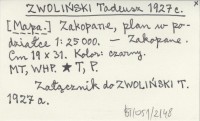 ZWOLIŃSKI Tadeusz 1927 c.
[Mapa.] Zakopane, plan w po-
działce 1:25 000. — Zakopane.
Cm 19 x 31. Kolor: czarny.
MT, WHP. ★ T, P.
Załącznik do ZWOLIŃSKI T.
1927 a.